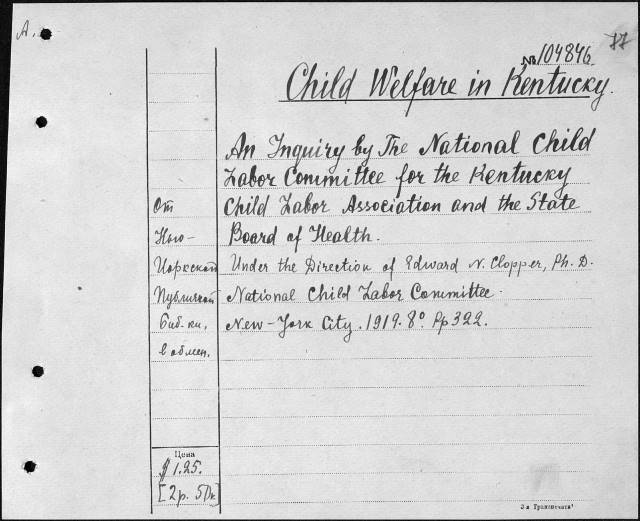 A.
77
№ 104846
Child Welfare in Kentucky.
An Inquiry by The National Child
Labor Committee for the Kentucky
Child Labor Association and the State
Board of Health.
Under the Direction of Edward N. Clopper, Ph. D.
National Child Labor Committee.
New-York City. 1919. 8° Pp 322.
От
Нью-
Иоркской
Публичной
Биб-ки,
в обмен.
Цена
$ 1.25.
[2р. 50к]
3-я Гравпечать